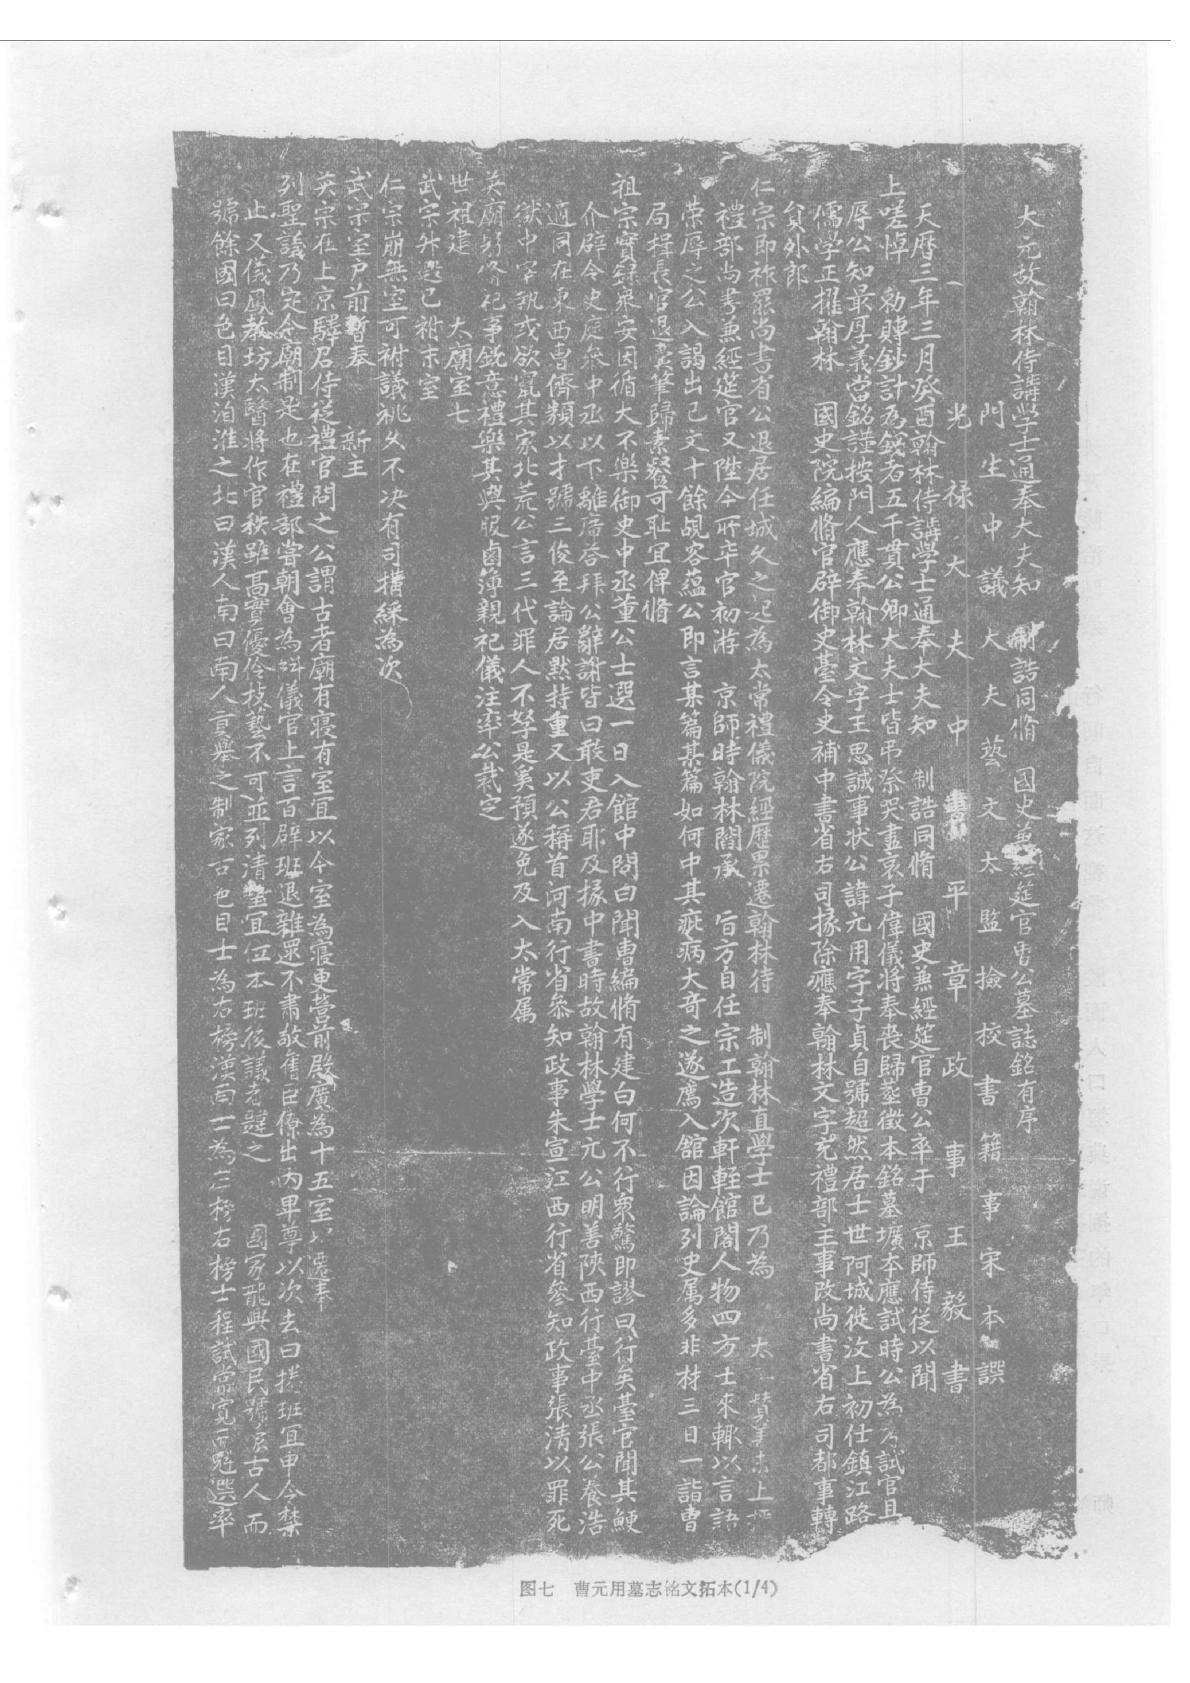 大元故翰林侍講學士通奉大夫知 制誥同脩 國史兼經筵官曹公墓誌銘有序
門生中議大夫藝文太監撿校書籍事宋本譔
光祿大夫中書平章政事王毅書
天曆三年三月癸酉翰林侍講學士通奉大夫知 制誥同脩 國史兼經筵官曹公卒于 京師侍從以聞
上嗟悼 勑賻鈔計為錢者五千貫公卿大夫士皆弔祭哭盡哀子偉儀將奉喪歸塟徵本銘墓壙本應試時公為試官且
辱公知最厚義當銘謹按門人應奉翰林文字王思誠事狀公諱元用字子貞自號超然居士世阿城徙汶上初仕鎮江路
儒學正擢翰林 國史院編脩官辟御史臺令史補中書省右司掾除應奉翰林文字充禮部主事改尚書省右司都事轉
貟外郎
仁宗即祚罷尚書省公退居任城久之起為太常禮儀院經歷累遷翰林待 制翰林直學士已乃為 太 贊善
禮部尚書兼經筵官又陞今所卒官初游 京師時翰林閻承 旨方自任宗工造次軒輊館閣人物四方士來輒以言語
榮辱之公入謁出已文十餘覘客蘊公即言某篇某篇如何中其疵病大奇之遂薦入舘因論列史属多非材三日一詣曹
局揖長官退冀筆歸素餐可耻宜俾脩
祖宗實錄衆安因循大不樂御史中丞董公士選一日入館中問曰聞曹編脩有建白何不行衆驚即謬曰行矣臺官聞其鯁
介辟令史庭叅中丞以下離席荅拜公辭謝皆曰敢吏君耶及掾中書時故翰林學士元公明善陝西行臺中丞張公養浩
適同在東西曹儕類以才號三俊至論居黙持重又以公稱首河南行省叅知政事朱宣江西行省叅知政事張清以罪死
獄中宰執或欲竄其家北荒公言三代罪人不孥是奚預遂免及入太常属
英廟躬脩祀事銳意禮樂其輿服鹵簿親祀儀注率公裁定
世祖建 太廟室七
武宗升遐已祔末室
仁宗崩無室可祔議祧久不决有司搆綵為次
武宗室户前暫奉 新主
英宗在上京驛召侍從禮官問之公謂古者廟有寢有室宜以今室為寢更營前殿廣為十五室以遷奉
列聖議乃定今廟制是也在禮部嘗朝會為糾儀官上言百辟班退雜還不肅敬舊臣僚出内畢尊以次去曰撓班宜申令禁
止又儀鳳教坊太醫將作官秩雖高實優伶技藝不可並列清望宜伍本班後議者韙之 國家龍興國民號蒙古人而
號餘國曰色目漢洎淮之北曰漢人南曰南人賔舉之制蒙古色目士為右榜漢南士為左榜右榜士程試常寬而魁選率